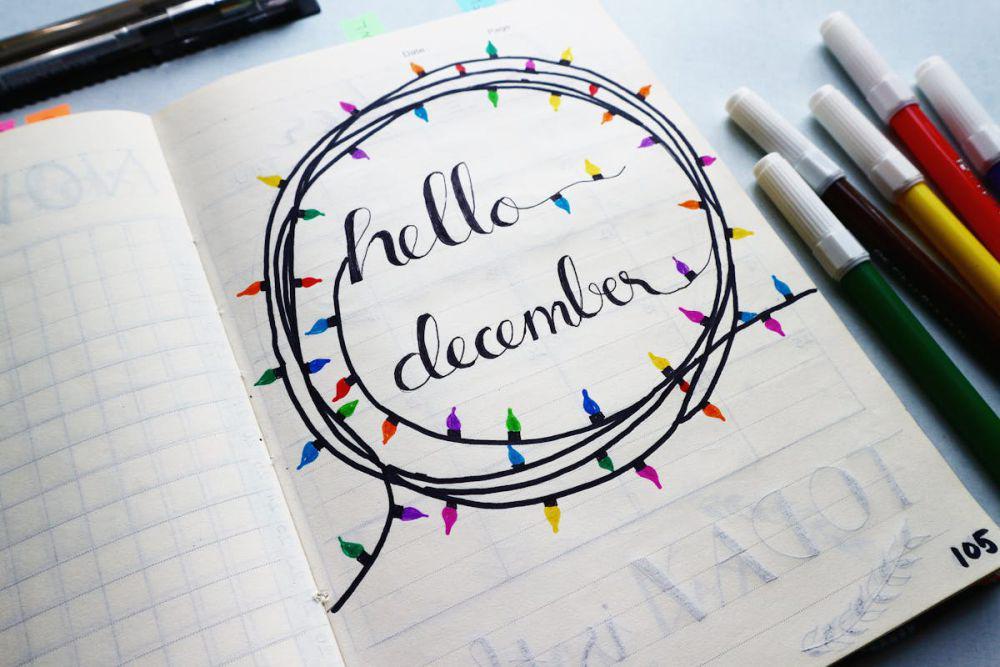 Date Page
hello
december
105